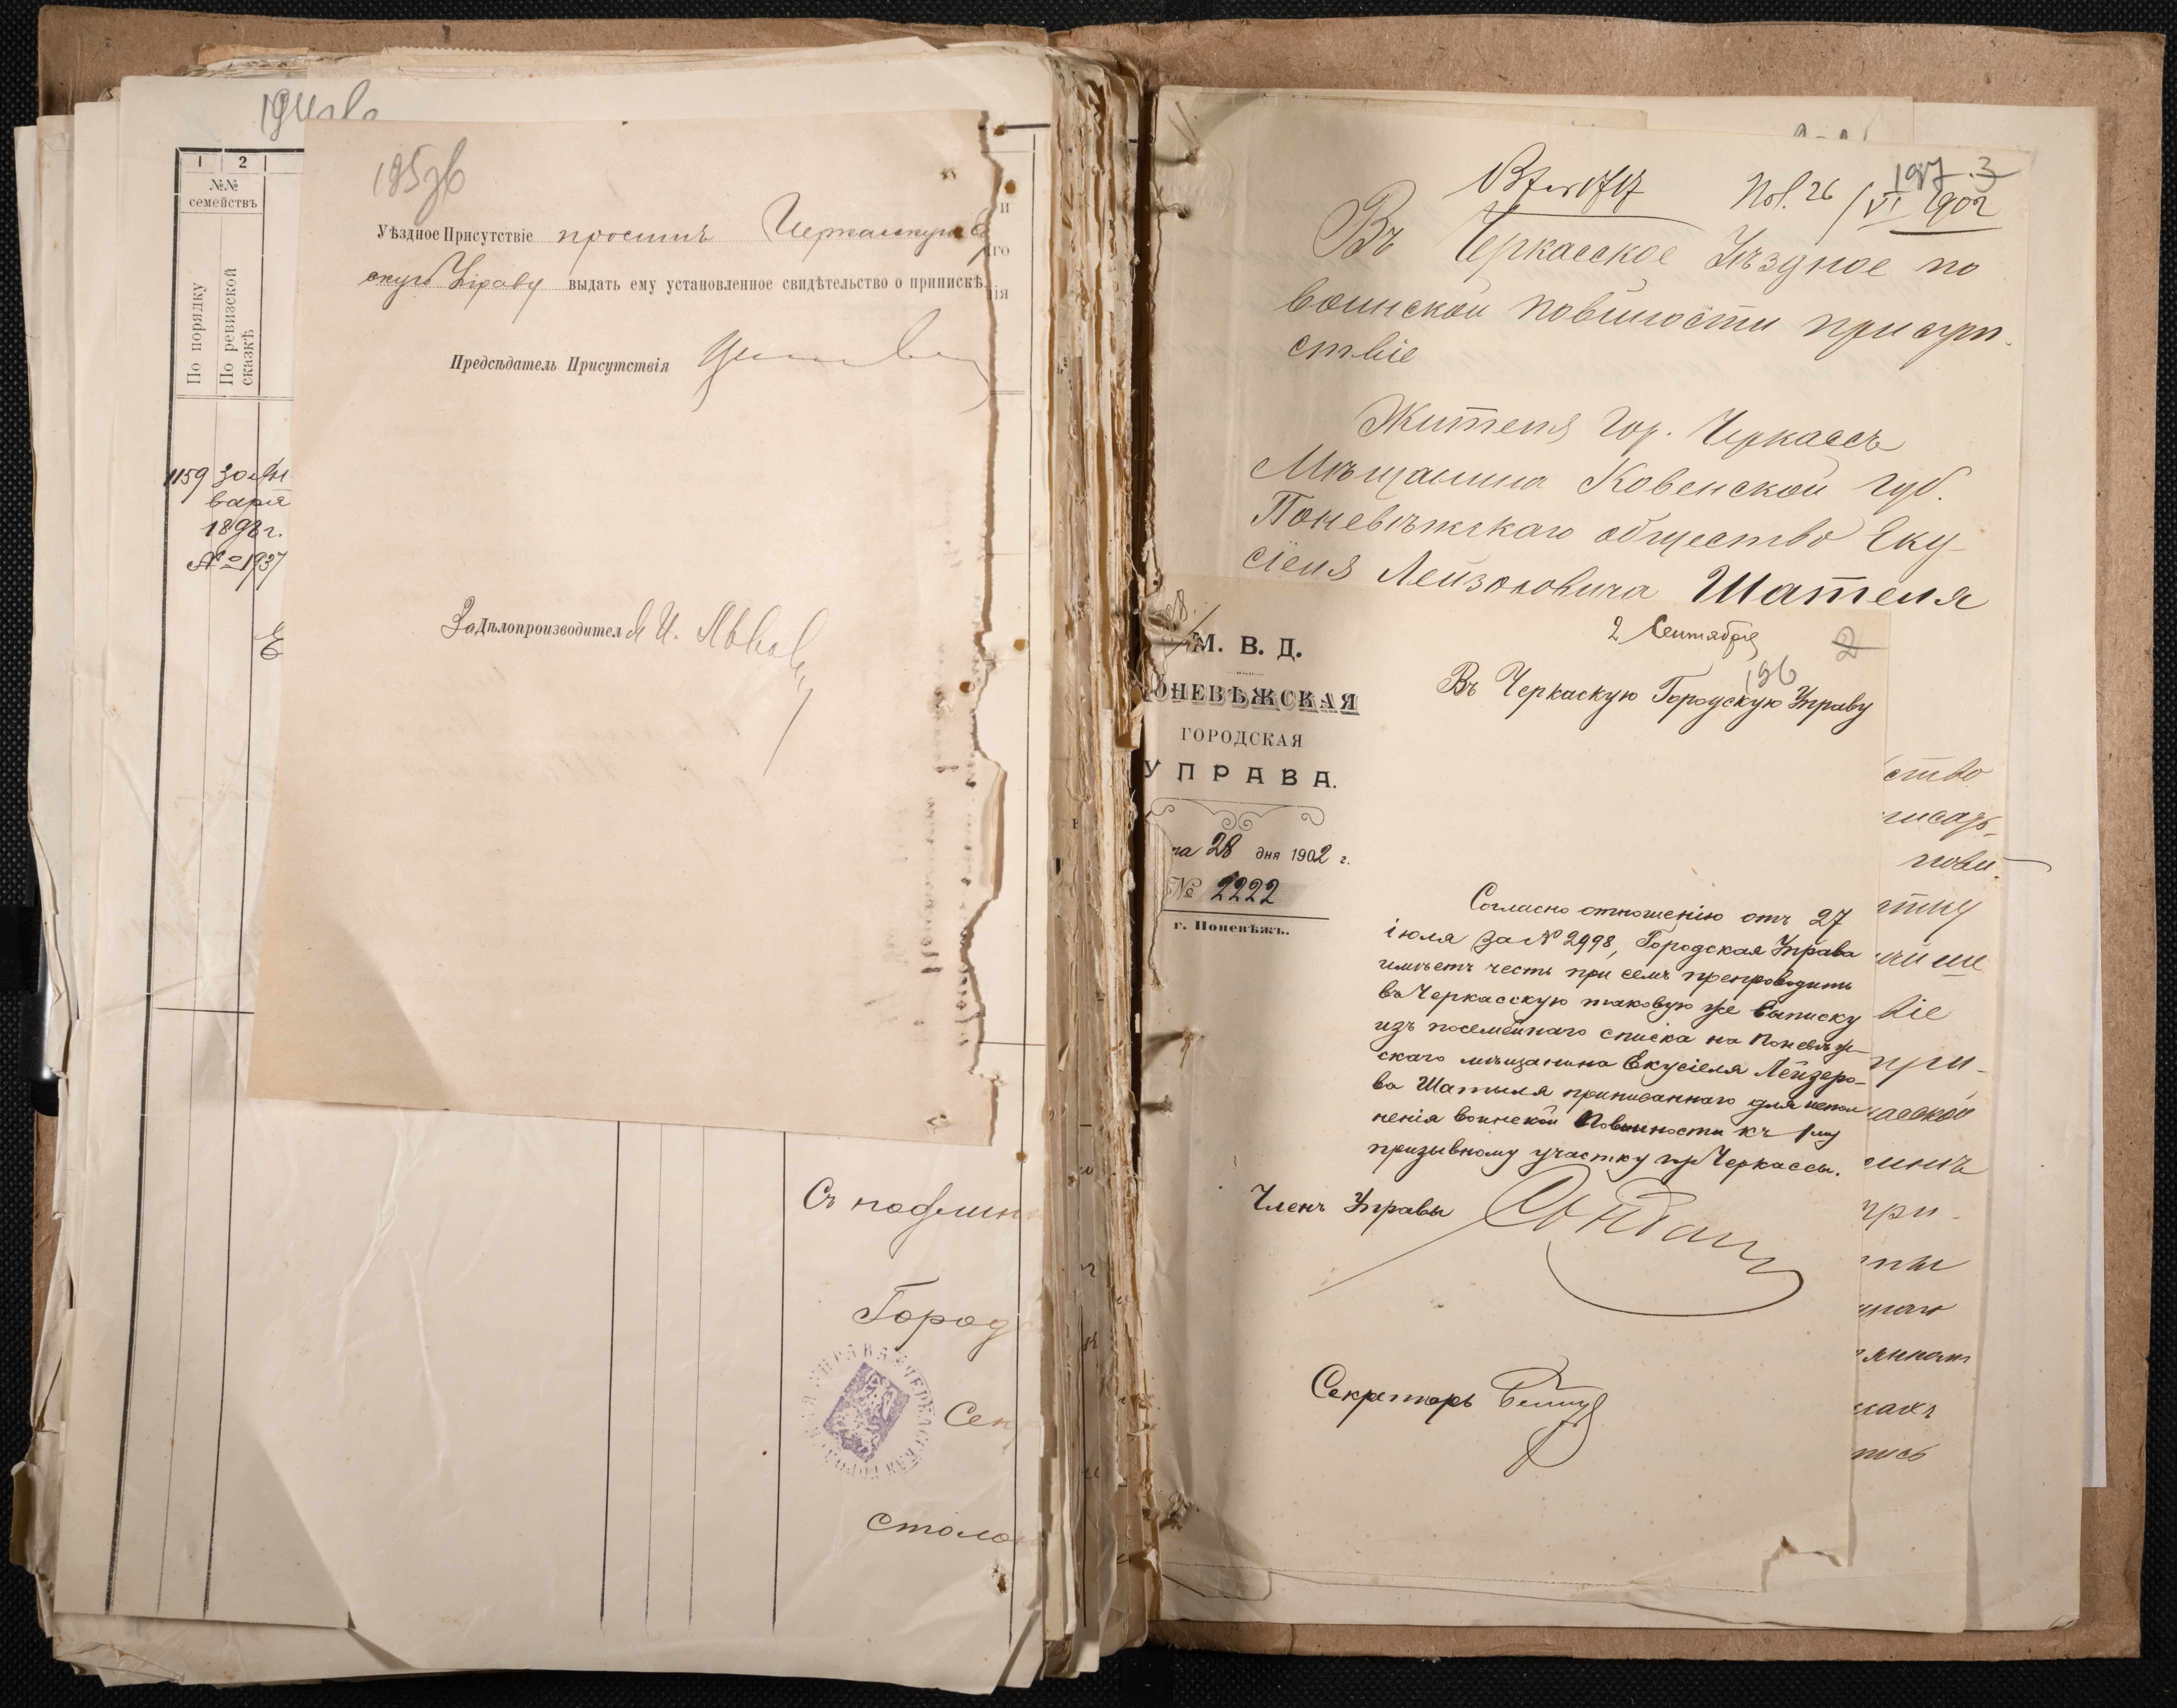 1
2
№№
семействъ
По порядку
По ревизской
сказкѣ
1159
30 Ян
варя
1898 г.
№ 1937
195зв
Уѣздное Присутствіе проситъ
скую Управу выдать ему установленное свидѣтельство о припискѣ
Предсѣдатель Присутствія
За Дѣлопроизводителя И.
Съ подлин
Город
Сек
столо
197 3
Пол. 26/VI 902
Въ Черкасское Уѣздное по
воинской повинности присут
ствіе
Жителя гор. Черкассъ
Мѣщанина Ковенской губ.
Поневѣжскаго общество Еку-
сіеля Лейзоровича Шателя
М. В. Д.
ПОНЕВѢЖСКАЯ
ГОРОДСКАЯ
УПРАВА.
28 дня 1902 г.
№ 2222
г. Поневѣжъ.
2 Сентября
2
196
Въ Черкаскую Городскую Управу
Согласно отношенію отъ 27
іюля за № 2998, Городская Управа
имѣетъ честь при семъ препроводить
въ Черкасскую таковую же выписку
изъ посемейнаго списка на Поневѣж-
скаго мѣщанина Екусіеля Лейзеро-
ва Шатыля приписаннаго для испол
ненія воинской Повинности къ 1му
призывному участку гр Черкассы.
Членъ Управы
Секретарь
ство
писар-
пови-
віе
при-
при-
пись